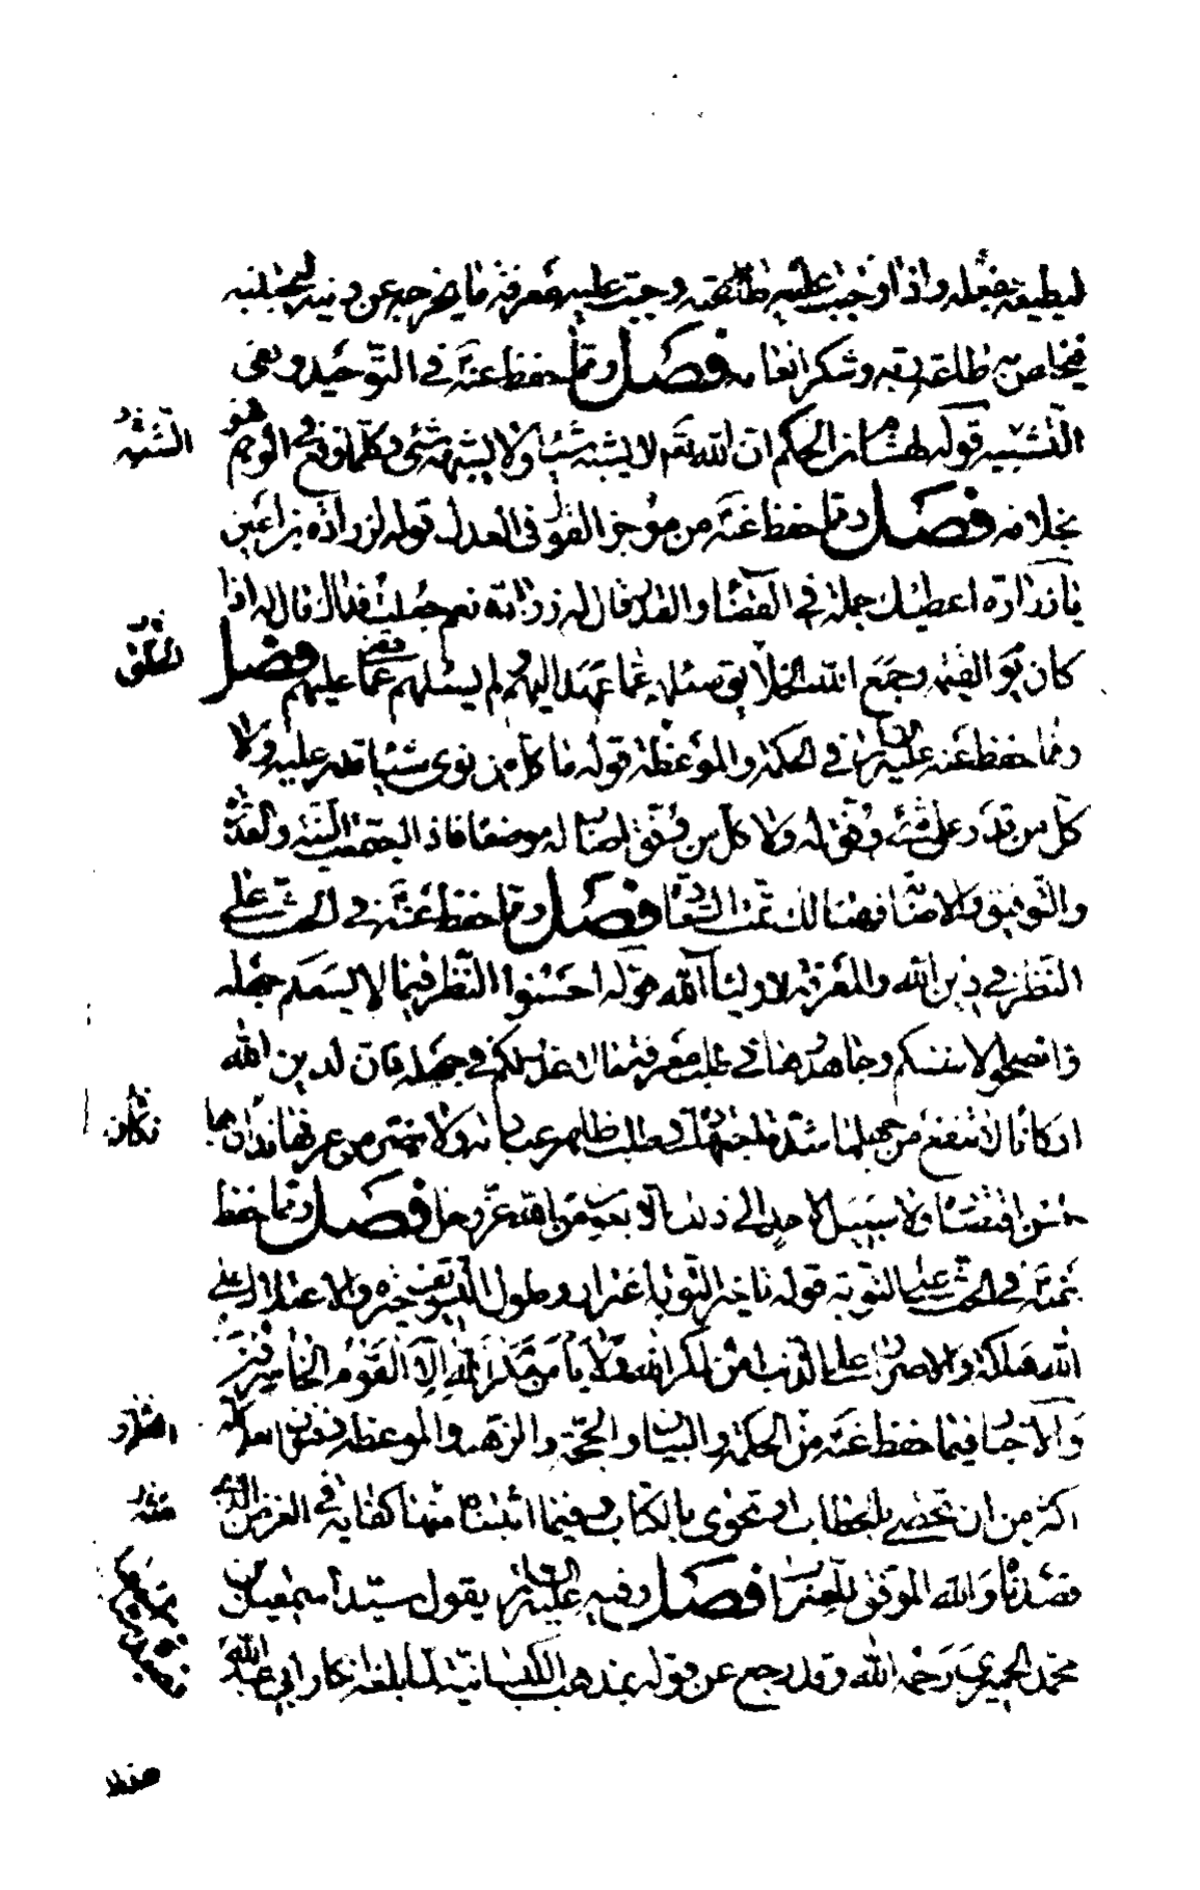 ليطيعه بفعله واذا وجبت عليه طاعته وجبت عليه معرفة ما يخرجه عن دينه ليجتنبه
فيخلص به طاعة ربه وشكر انعامه فصل ومما حفظ عنه في التوحيد ونفى
التشبيه قوله لهشام بن الحكم ان الله تعم لا يشبه شيئا ولا يشبهه شئ وكلما وقع في الوهم فهو
بخلافه فصل ومما حفظ عنه من موجز القول فى العدل قوله لزرارة بن اعين
يا زرارة اعطيك جملة في القضاء والقدر قال له زرارة نعم جعلت فداك قال له اذا
كان يوم القيمة وجمع الله الخلايق سئلهم عما عهد اليهم ولم يسئلهم عما قضى عليهم فصل
ومما حفظ عنه في الحكمة والموعظة قوله ما كل من نوى شيئا قدر عليه ولا
كل من قدر على شئ وفق له ولا كل من وفق اصاب له موضعا فاذا اجتمعت النية والقدرة
والتوفيق والاصابة فهنالك تمت السعادة فصل ومما حفظ عنه في الحث على
النظر في دين الله والمعرفة لاولياء الله قوله احسنوا النظر فيما لا يسعكم جهله
وانصحوا لانفسكم وجاهدوها في طلب معرفة ما لا عذر لكم في جهله فان لدين الله
اركانا لا ينفع من جهلها شدة اجتهاده في طلب ظاهر عبادته ولا يضر من عرفها فدان بها
حسن اقتصاده ولا سبيل لاحد الى ذلك الا بعون من الله عز وجل فصل ومما حفظ
عنه في الحث على التوبة قوله تاخير التوبة اغترار وطول التسويف حيرة والاعتلال على
الله هلكة والاصرار على الذنب امن لمكر الله ولا يأمن مكر الله الا القوم الخاسرون
والاخبار فيما حفظ عنه من الحكمة والبيان والحجة والزهد والموعظة وفنون العلم كله
اكثر من ان تحصى بالخطاب او تحوى بالكتاب وفيما اثبتناه منها كفاية في الغرض الذي
قصدناه والله الموفق للصواب فصل وفيه يقول سيد اسمعيل بن
محمد الحميري رحمه الله وقد رجع عن قوله بمذهب الكيسانية لما بلغه انكار ابي عبد الله